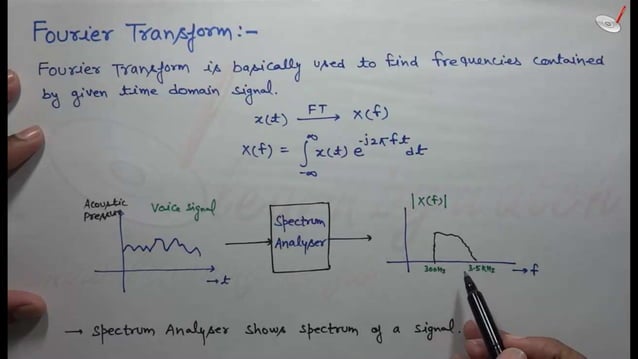 Fourier Transform:-
Fourier Transform is basically used to find frequencies contained
by given time domain signal.
x(t) FT→ X(f)
X(f) = ∫_{-∞}^{∞} x(t) e^{-j2πft} dt
Acoustic
Pressure
Voice signal
→t
Spectrum
Analyser
|X(f)|
300Hz
3.5KHz
→f
→ Spectrum Analyser shows spectrum of a signal.